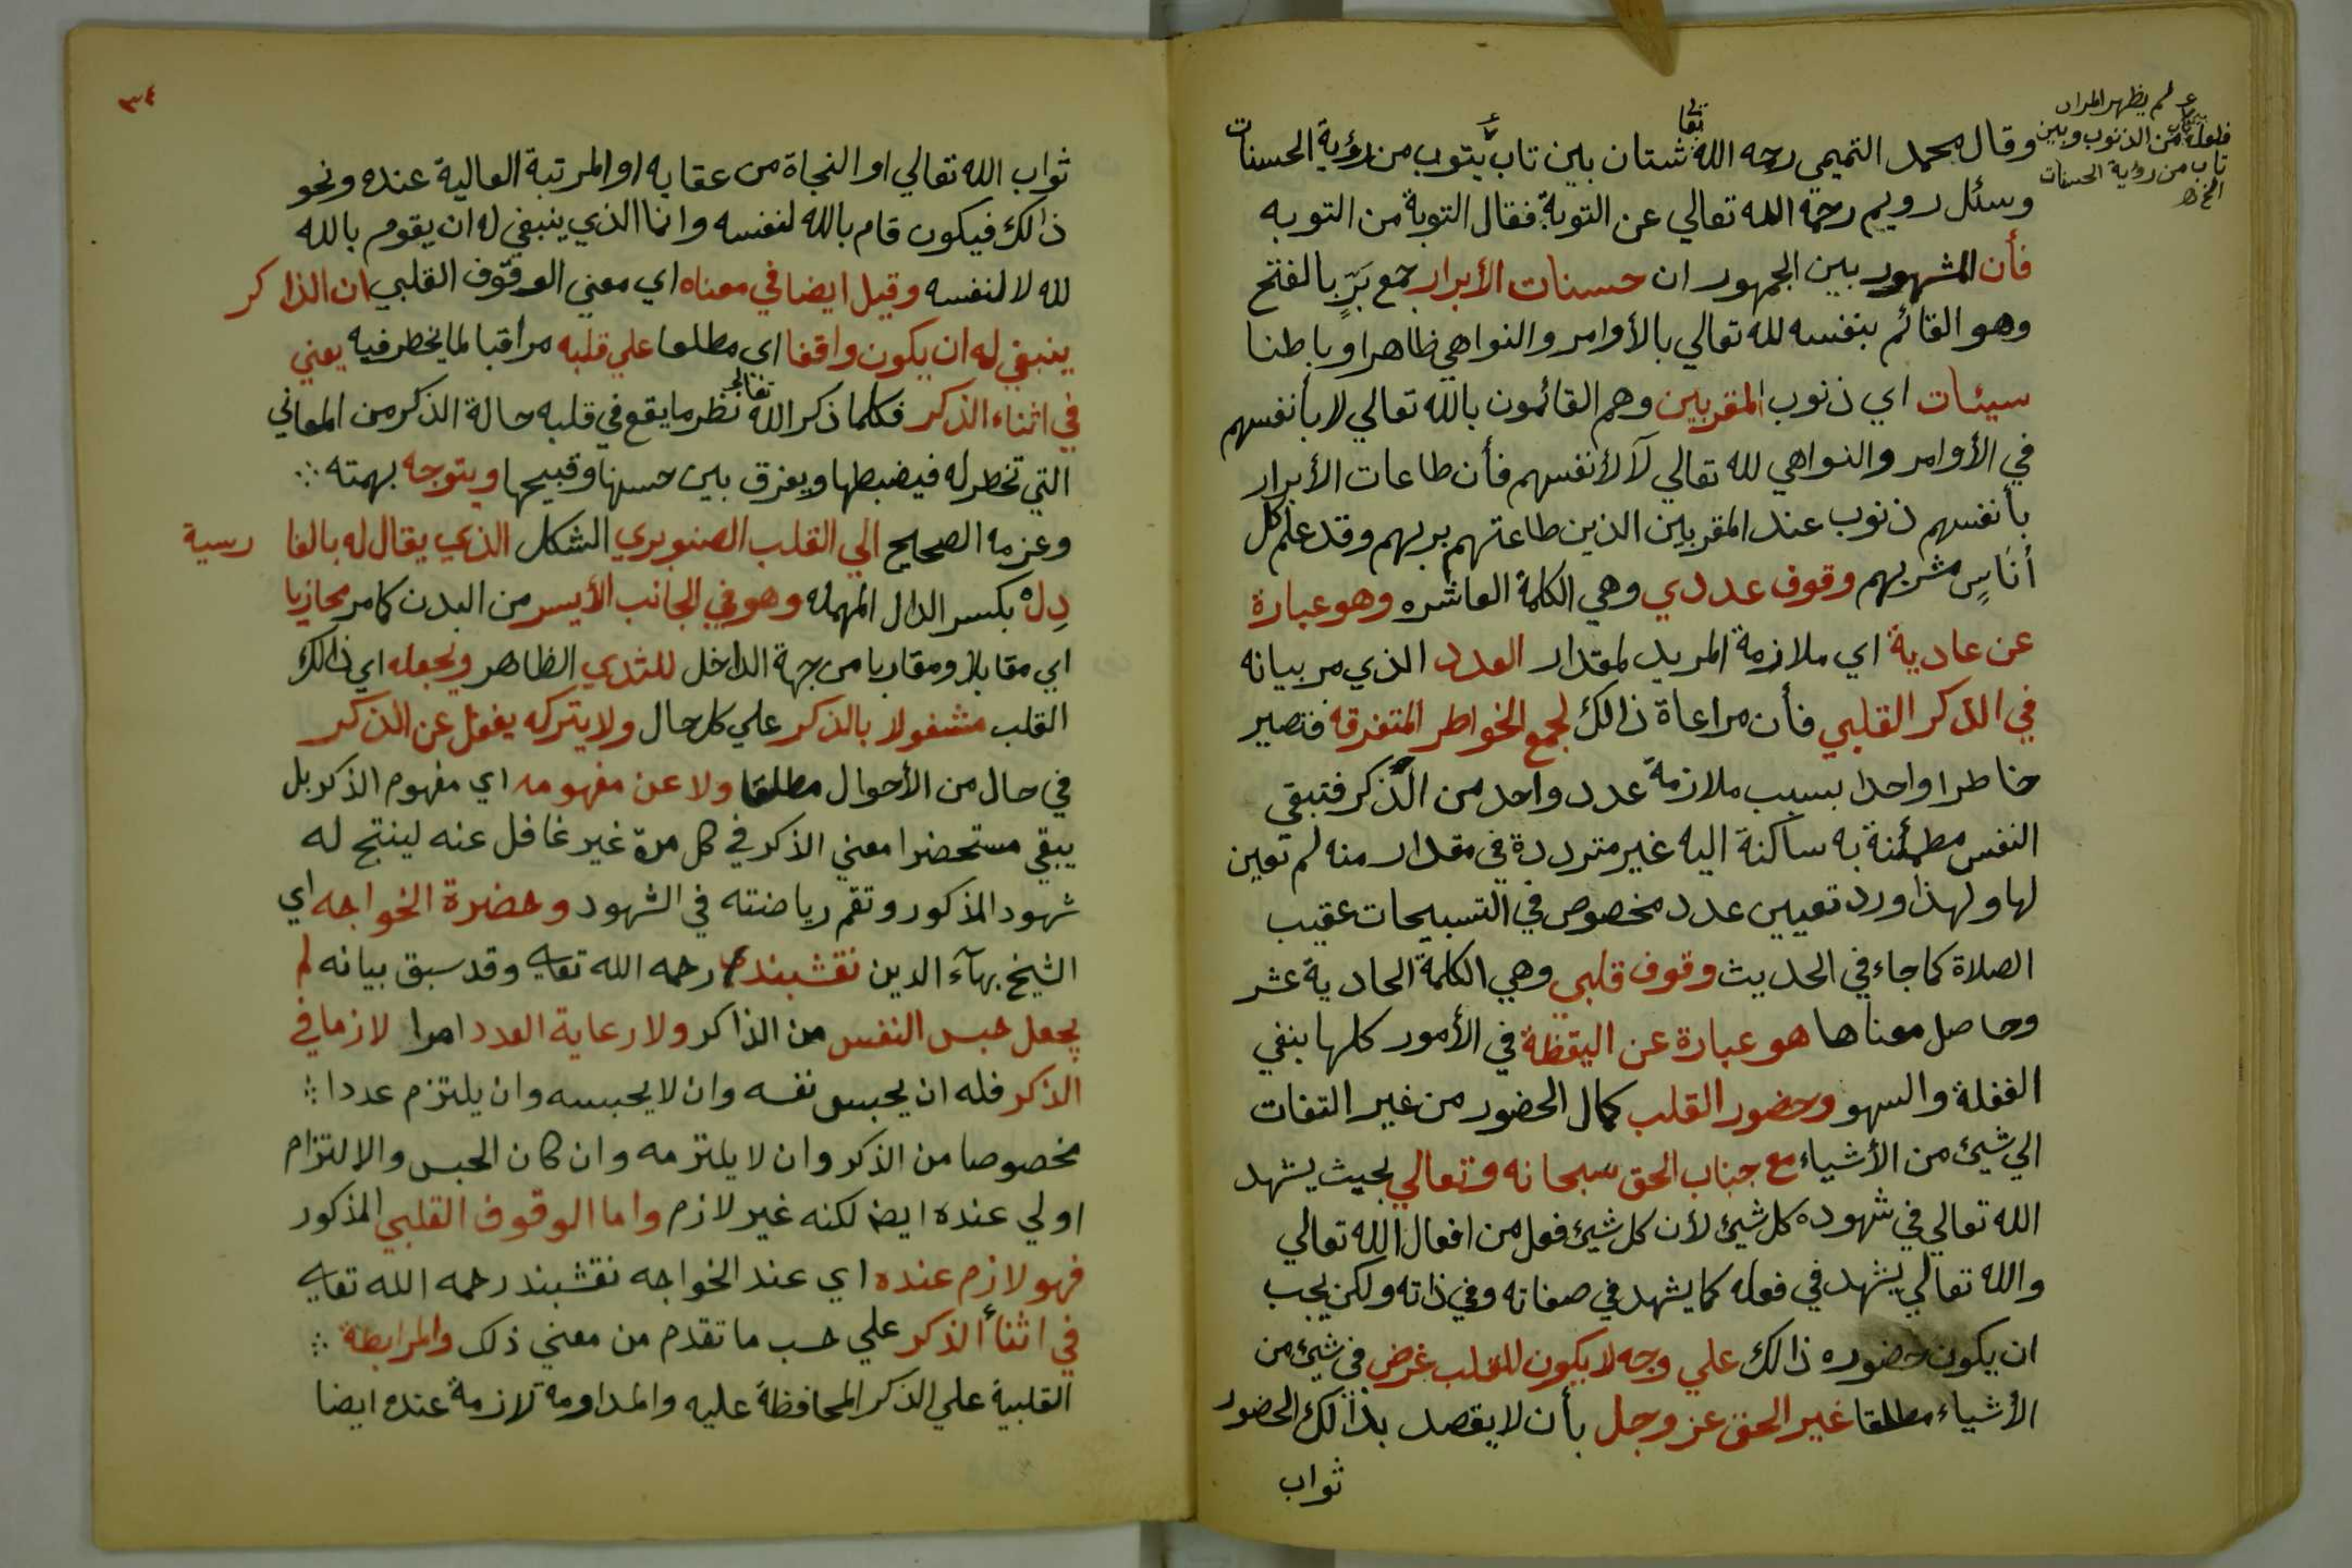 وقال محمد التميمي رحه الله تعا شتان بين تاب يتوب من رؤية الحسنات
وسئل رويم رحمة الله تعالي عن التوبة فقال التوبة من التوبه
فأن المشهور بين الجمهور ان حسنات الأبرار جمع بَرٍّ بالفتح
وهو القائم بنفسه لله تعالي بالأوامر والنواهي ظاهرا وباطنا
سيئات اي ذنوب المقربين وهم القائمون بالله تعالي لا بأنفسهم
في الأوامر والنواهي لله تعالي لا لأنفسهم فأن طاعات الأبرار
بأنفسهم ذنوب عند المقربين الذين طاعتهم بربهم وقد علم كل
أناسٍ مشربهم وقوف عددي وهي الكلمة العاشره وهو عبارة
عن عادية اي ملازمة المريد لمقدار العدد الذي مر بيانه
في الذكر القلبي فأن مراعاة ذالك لجمع الخواطر المتفرقه فتصير
خاطرا واحدا بسبب ملازمة عدد واحد من الذكر فتبقي
النفس مطمئنة به ساكنة اليه غير مترددة في مقدار منه لم تعين
لها ولهذا ورد تعيين عدد مخصوص في التسبيحات عقيب
الصلاة كما جاء في الحديث وقوف قلبي وهي الكلمة الحادية عشر
وحاصل معناها هو عبارة عن اليقظة في الأمور كلها بنفي
الغفلة والسهو وحضور القلب كمال الحضور من غير التفات
الي شيئ من الأشياء مع جناب الحق سبحانه وتعالي بحيث يشهد
الله تعالي في شهوده كل شيئ لأن كل شيئ فعل من افعال الله تعالي
والله تعالي يشهد في فعله كما يشهد في صفاته وفي ذاته ولكن يجب
ان يكون حضوره ذالك علي وجه لا يكون للقلب غرض في شيئ من
الأشياء مطلقا غير الحق عز وجل بأن لا يقصد بذالك الحضور
ثواب
ع لم يظهر المراد
فلعله من الذنوب وبين
تاب من رؤية الحسنات
الخ
٣٤
ثواب الله تعالي او النجاة من عقابه او المرتبة العالية عنده ونحو
ذالك فيكون قام بالله لنفسه وانما الذي ينبغي له ان يقوم بالله
لله لا لنفسه وقيل ايضا في معناه اي معني الوقوف القلبي ان الذاكر
ينبغي له ان يكون واقفا اي مطلعا علي قلبه مراقبا لما يخطر فيه يعني
في اثناء الذكر فكلما ذكر الله تعالي نظر ما يقع في قلبه حالة الذكر من المعاني
التي تخطر له فيضبطها ويفرق بين حسنها وقبيحها ويتوجه بهمته ∴
وعزمه الصحيح الي القلب الصنوبري الشكل الذي يقال له بالفا رسية
دِل بكسر الدال المهمله وهو في الجانب الأيسر من البدن كما مر محازيا
اي مقابلا ومقاربا من جهة الداخل للثدي الظاهر ويجعله اي ذالك
القلب مشغولا بالذكر علي كل حال ولا يتركه يغفل عن الذكر
في حال من الأحوال مطلقا ولا عن مفهومه اي مفهوم الذكر بل
يبقي مستحضرا معني الذكر في كل مرة غير غافل عنه لينتج له
شهود المذكور وتقم رياضنته في الشهود وحضرة الخواجه اي
الشيخ بهآء الدين نقشبند رحمه الله تعالي وقد سبق بيانه لم
يجعل حبس النفس من الذاكر ولا رعاية العدد امرا لازما في
الذكر فله ان يحبس نفسه وان لا يحبسه وان يلتزم عددا ∴
مخصوصا من الذكر وان لا يلتزمه وان كان الحبس والالتزام
اولي عنده ايضا لكنه غير لازم واما الوقوف القلبي المذكور
فهو لازم عنده اي عند الخواجه نقشبند رحمه الله تعالي
في اثنأ الذكر علي حسب ما تقدم من معني ذلك والمرابطة ∴
القلبية علي الذكر المحافظة عليه والمداومة لازمة عنده ايضا